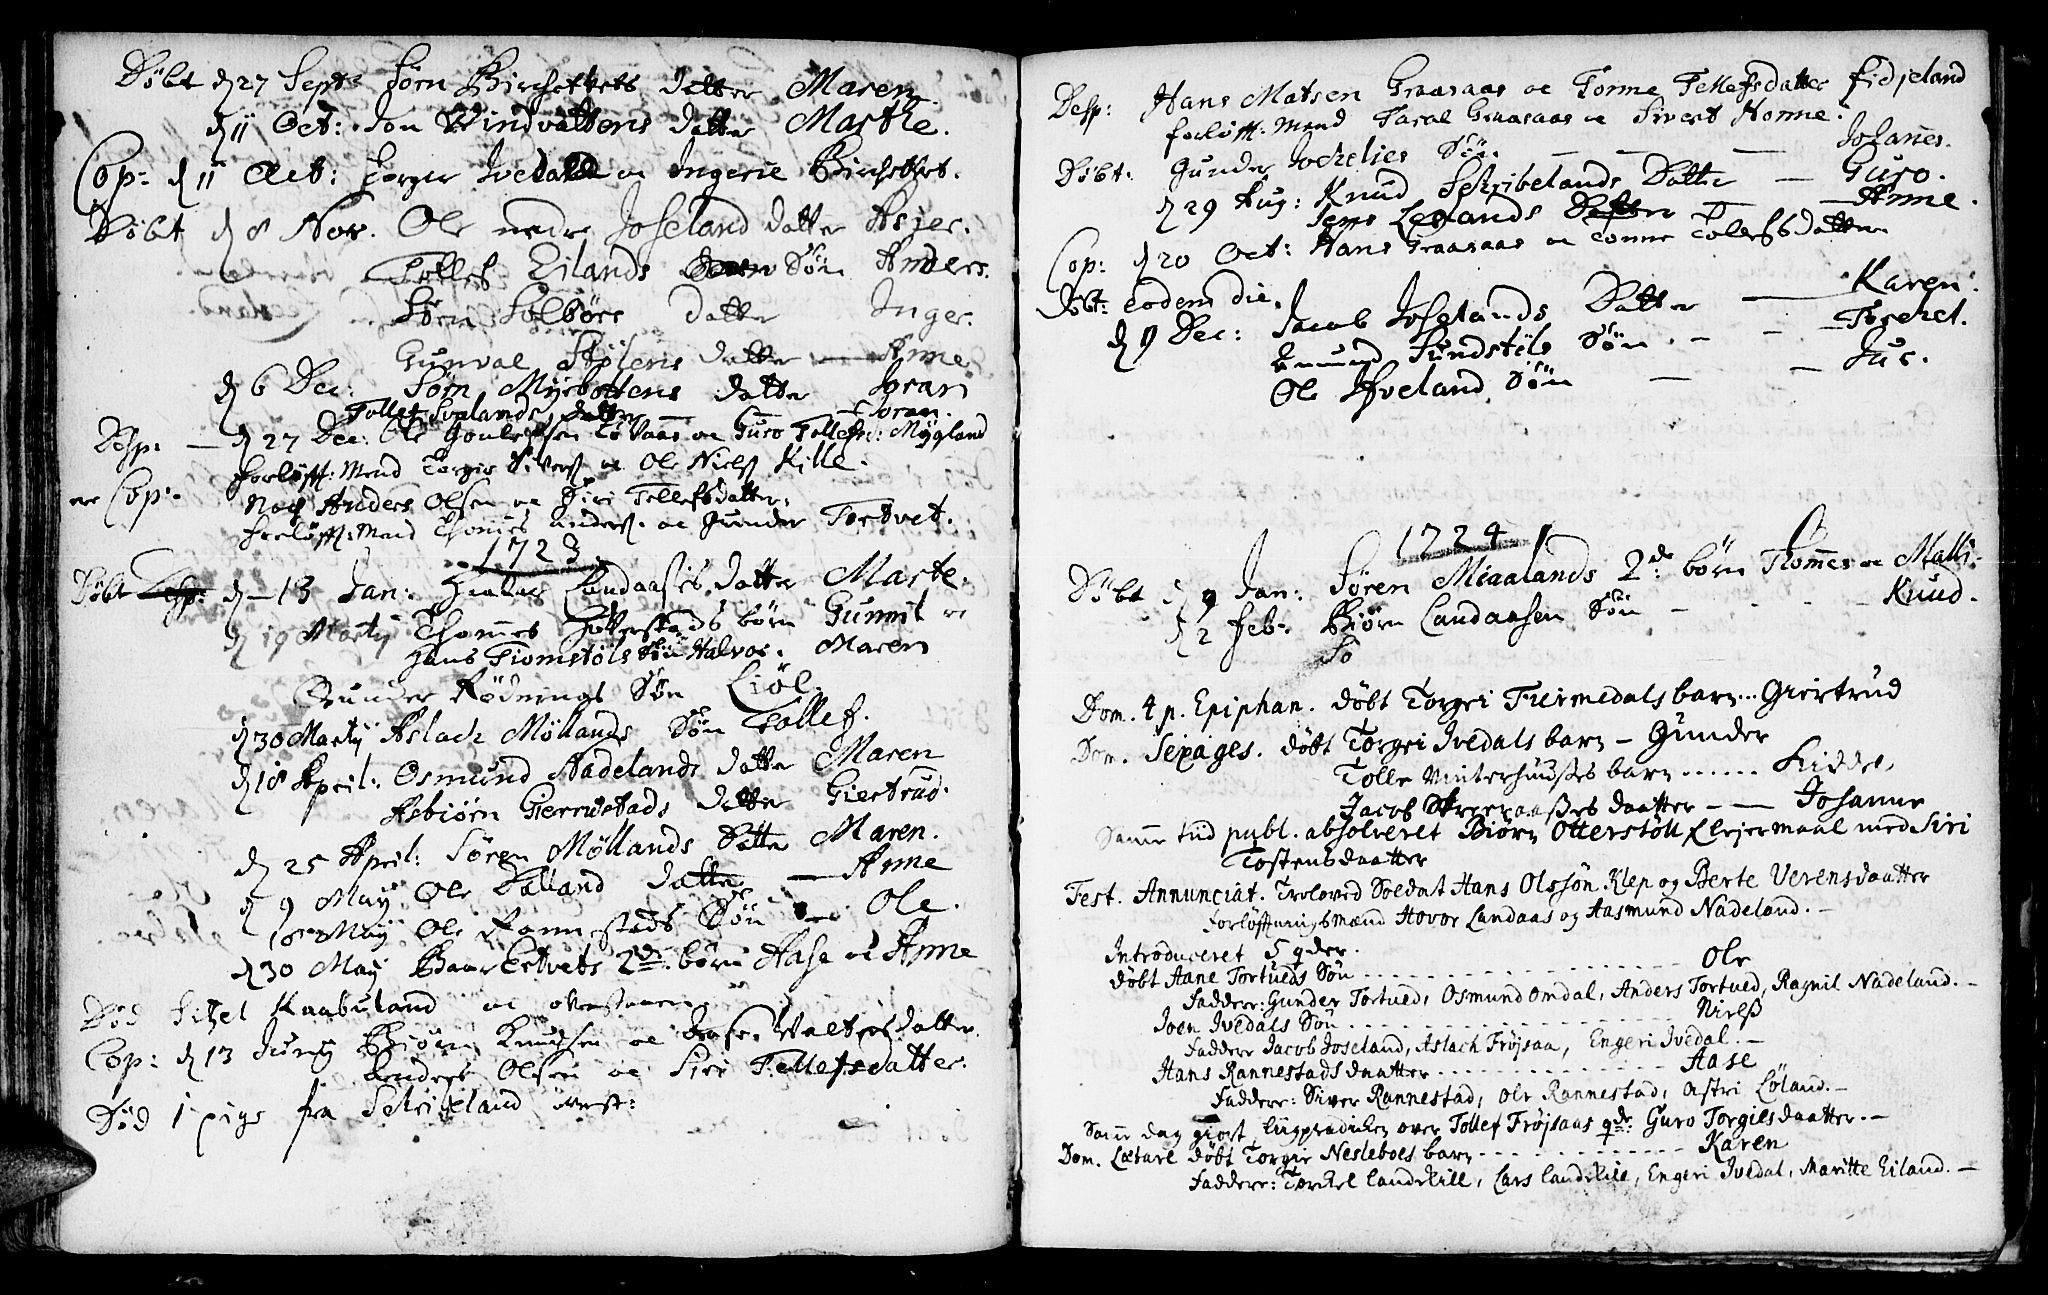 Døbt d 27 Sept: Sørn Birchettets datter Maren
d 11 Oct: Jon Windvattens datter Marthe.
Cop: d 11 Oct: Torger Ivedal oc Ingerie Birchettet.
Døbt d 8 Nov. Ole nedre Joseland datter Asjer.
Tollef Eilands Søn Anders.
Sørn Solbørs datter Inger.
Gunval Stølens datter — Anne.
d 6 Dec: Sørn Myrbottens datter Joran
Tollef Sveelands datter — Joran.
Desp: — d 27 Dec: Ole Tovaas oc Guro Tollefsd: Mygland
forløfft: Mend Torger Sivers oc Ole Niels Kille.
Cop: Noch Anders Olsen oc Siri Tellefsdatter.
forløfft: Mend Thomes Anders. oc Gunder Tortvet.
1723
Døbt d — 13 Jan: Landaases datter Marte.
d 19 Martij Thomes børn Gunnil oc
Hans Tiomstøls Søn Halvor. Maren
Gunder Rødnings Søn Liøl.
d 30 Martij Aslach Møllands Søn Tollef.
d 18 April: Osmund Nadelands datter Maren
Asbiørn Gierrustads datter Giertrud.
d 25 April: Søren Møllands datter Maren.
d 9 May Ole Dalland datter — Anne
May Ole Rannestads Søn — Ole.
d 30 May Haar Estvets 2de børn Aase oc Anne
Død Sitzel Kaabuland
Cop: d 13 Juny Biørn Knudsen oc Valtersdatter.
Anders Olsen oc Siri Tellefsdatter.
Død 1 pige fra Schribeland
Desp: Hans Matsen Graasaas oc Tonne Tellefsdatter Fidjeland
forløfft: Mend Taral Graasaas oc Sivert Honne.
Døbt: Gunder Jochelies Søn — — — Johanes.
d 29 Aug: Knud Schribelands Datter — Guro.
Jens Leelands Datter — Anne.
Cop: d 20 Oct: Hans Graasaas oc Tonne Tolefsdatter
Døbt: eodem die. Jacob Joselands Datter — Karen.
d 9 Dec: Amund Sundstøls Søn. — — Torchel.
Ole Hveland Søn — — Jur.
1724
Døbt d 9 Jan: Søren Miaalands 2de børn Thomes oc Malli.
d 2 Feb: Biørn Landaasen Søn — — Knud.
So
Dom. 4 p. Epiphan. døbt Torgri Treimedals barn ... Giertrud
Dom. Sexages. døbt Torgri Ivedals barn — Gunder
Tolle Vinterhuuses barn ...... Kiddel
Jacob daatter — Johanne
Same tiid publ. absolveret Biørn Otterstøll Leyermaal med Siri
Tostensdaatter
Fest. Annunciat. Troloved Soldat Hans Olssøn Klep og Berte Verensdaatter
Forløfftningsmænd Hovor Landaas og Aasmund Nadeland. —
Introduceret 5 qder.
døbt Aane Tortveds Søn ........ Ole
Faddere: Gunder Tortved, Osmund Omdal, Anders Tortved, Ragnil Nadeland. —
Joen Ivedals Søn ........ Nielss
Faddere Jacob Joseland, Aslach Frøjsaa, Engeri Ivedal. —
Hans Rannestads daatter ........ Aase
Faddere: Siver Rannestad, Ole Rannestad, Astri Løland. —
Same dag giort liigprædicken over Tollef Frøjsaas qde: Guro Torgiesdaatter. —
Dom. Lætare døbt Torgir Nesleboes barn ........ Karen
Faddere: Torkel Landekill, Lars Landekill, Engeri Ivedal, Maritte Eiland. —